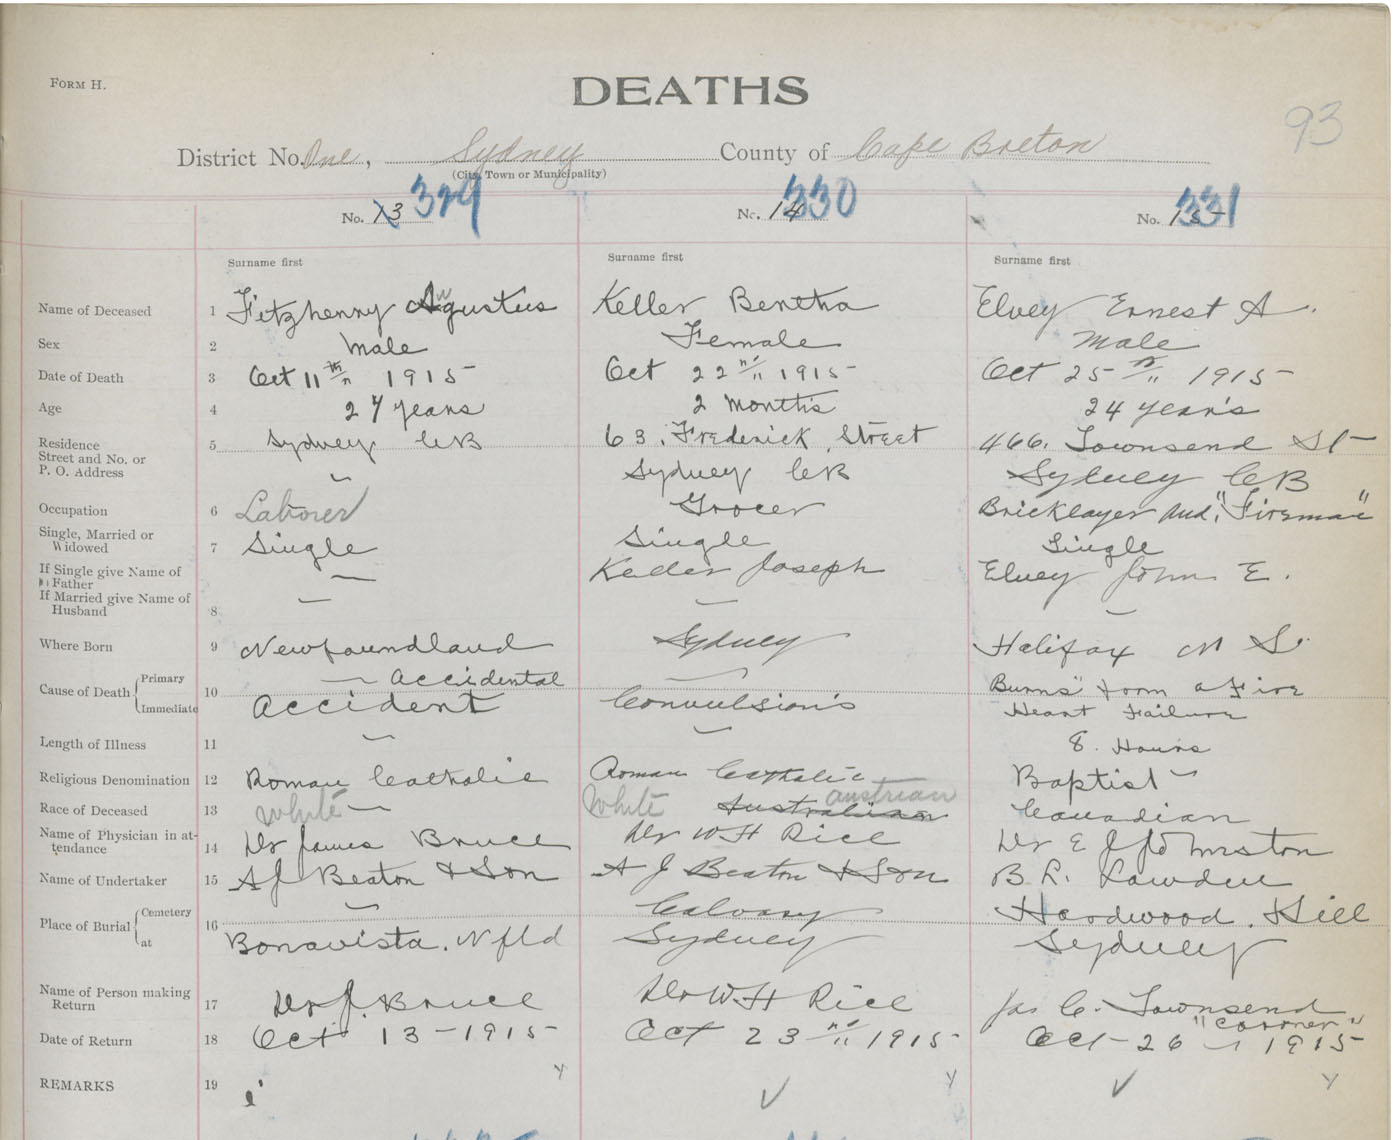 FORM H.
DEATHS
93
District No. One, Sydney County of Cape Breton
(City, Town or Municipality)
No. 13 329
No. 14 330
No. 15 331
Surname first
Surname first
Surname first
Name of Deceased 1 Fitzhenny Augustus Keller Bertha Elvey Ernest A.
Sex 2 Male Female Male
Date of Death 3 Oct 11th " 1915 Oct 22nd " 1915 Oct 25th " 1915
Age 4 27 years 2 Months 24 year's
Residence 5 Sydney CB 63. Frederick Street 466. Townsend St
Street and No. or
P. O. Address Sydney CB Sydney CB
Occupation 6 Laborer Grocer Bricklayer and, "Fireman"
Single, Married or
Widowed 7 Single Single Single
If Single give Name of
Father Keller Joseph Elvey John E.
If Married give Name of
Husband 8
Where Born 9 Newfoundland Sydney Halifax N S.
Cause of Death Primary Accidental Burns" from a Fire
10
Immediate Accident Convulsion's Heart Failure
Length of Illness 11 8. Hours
Religious Denomination 12 Roman Catholic Roman Catholic Baptist
Race of Deceased 13 White White Australian austrian Canadian
Name of Physician in at-
tendance 14 Dr James Bruce Dr W H Rice Dr E J Johnston
Name of Undertaker 15 A J Beaton & Son A J Beaton & Son B L. Lowden
Place of Burial Cemetery Calvary Hardwood. Hill
16
at Bonavista. Nfld Sydney Sydney
Name of Person making
Return 17 Dr J. Bruce Dr W. H Rice Jas C. Townsend
"Corner"
Date of Return 18 Oct 13 - 1915 Oct 23rd " 1915 Oct - 26 - 1915
REMARKS 19